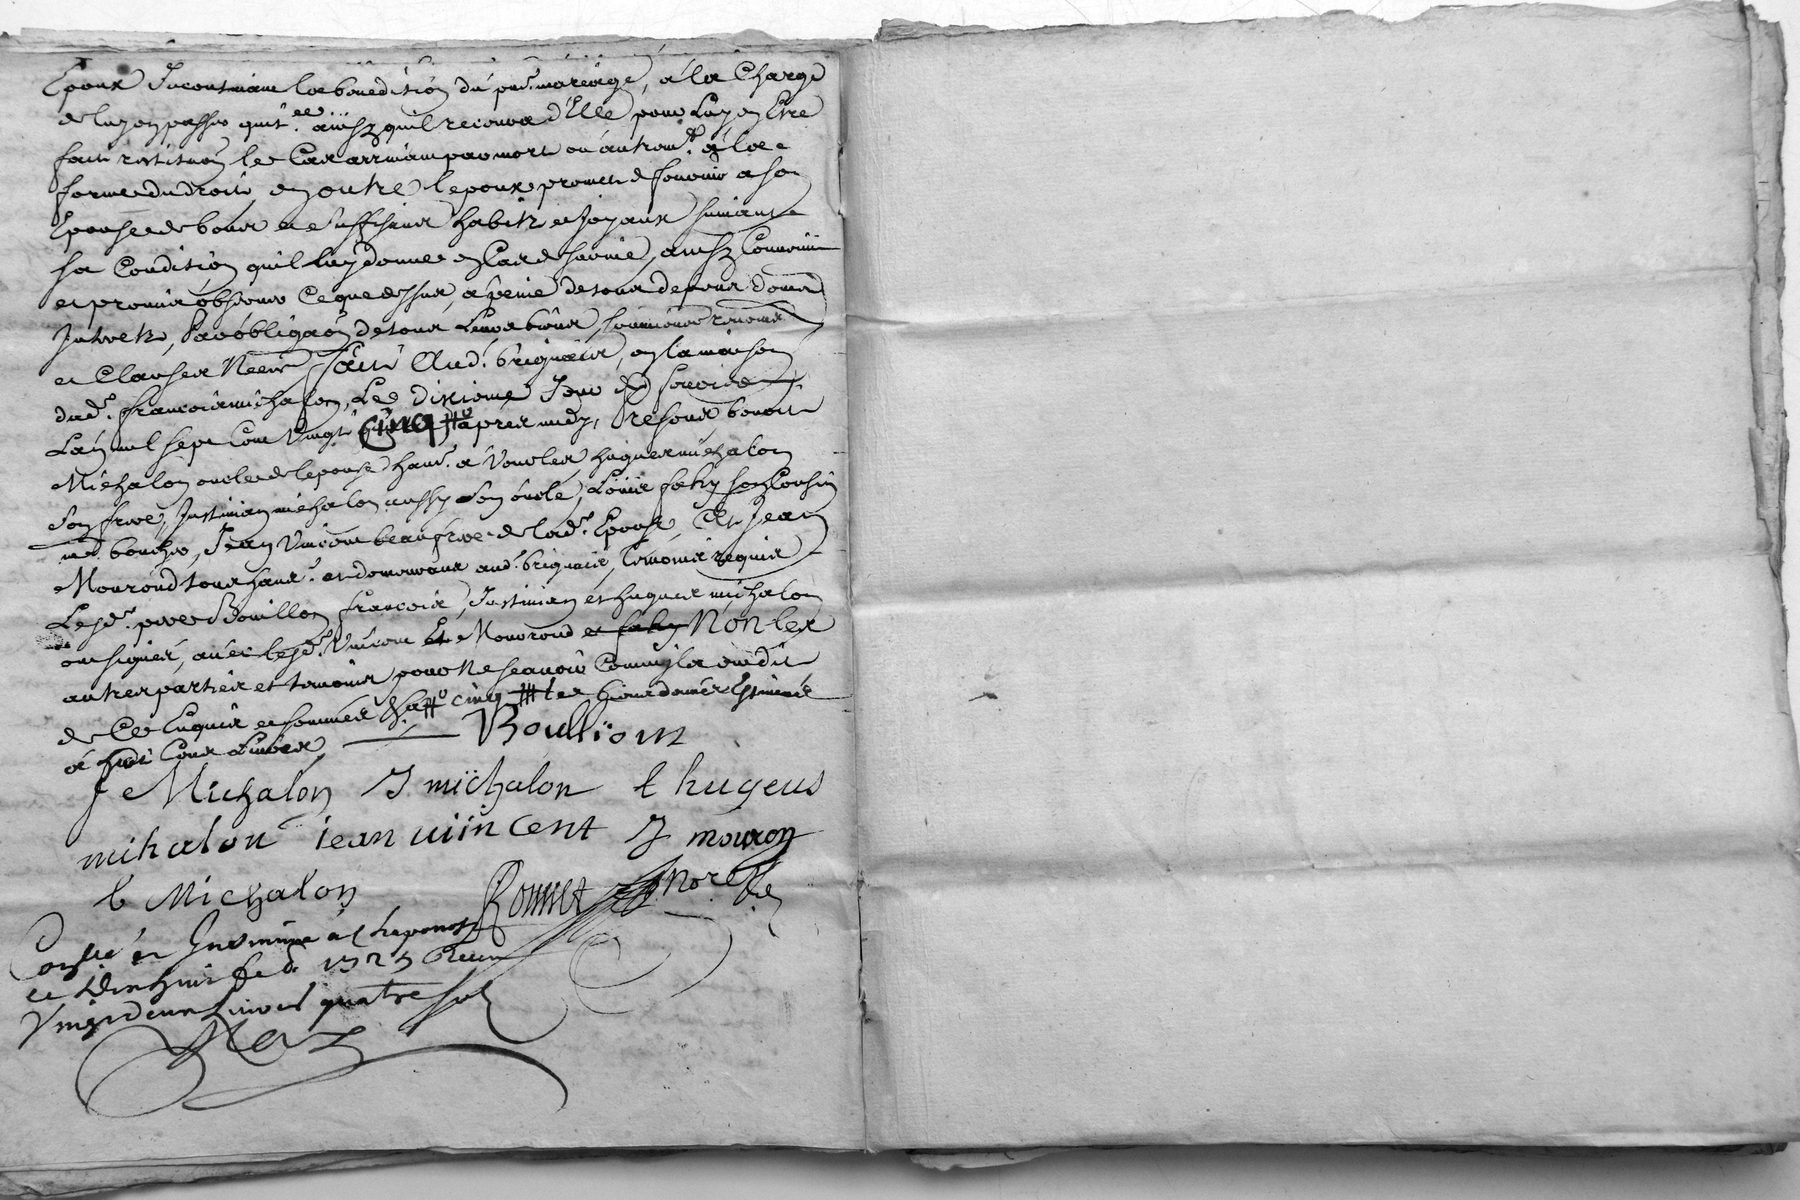 Epoux Incontinant la benediction du pnt. mariage, a la Charge
de luy en passer quit.ce ainsy quil recevra d'Elle pour luy en Etre
fait restituon le Cas arrivant par mort ou autrem.t a la
forme du droit, en outre lepoux promet de fournir a son
Epousee de bons et suffisans habits et Joyaux suivant
sa Condition quil luy donne en Cas de survie, ainsy Convenu
et promis observer Ce que dessus, a peine de tous depens domm
Interets, Par obligaon de tous Leurs biens, soumissions renons
et Clauses Neces.. fait Aud. brignais, en la maison
dud. francois michalon, Le dixieme Jour de fevrier
Lan mil sept Cent Vingt Cinq apres midy, presens benoit
Michalon oncle de lepouse hant. a Vourles, hugues michalon
son frere, Justinian michalon aussy son oncle, Louis faky son Cousin
m.e boucher, Jean Vincent beaufrere de lad. Epouse, Et Jean
Mourond tous hans. et demeurans aud. brignais, temoins requis
Lesd. pere Bouillon francois, Justinian et hugues michalon
ont signes, avec lesd. Vincent Et Mourond et faky Non les
autres parties et temoins pour Ne scavoir Comm' ils ont dit
de Ce Enquis et sommes cinq les biens donnes Estimes
a huit Cens Livres
Boullioud
f Michalon J michalon E hugeus
mihalon iean viincent J mouron
b Michalon Bonnet Not. Re.
Con.lé et Insinué a Chaponost
le dix huit fe. 1725 Receu
Vingt deux Livres quatre sols